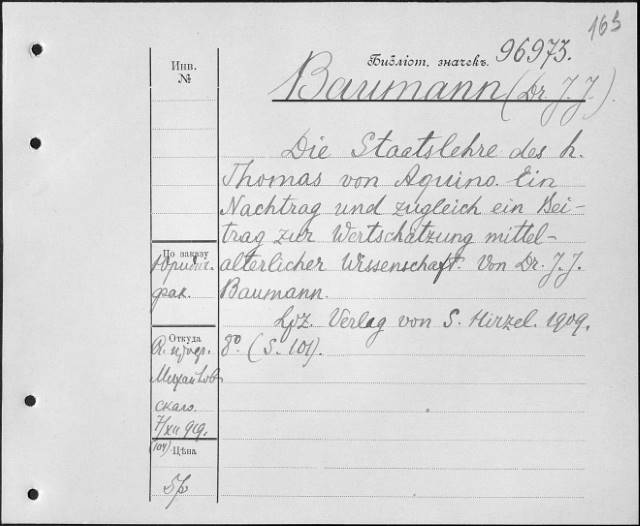 163
Библіот. значекъ. 96973.
Инв.
№
Baumann (Dr. J. J.).
Die Staatslehre des h.
Thomas von Aquino. Ein
Nachtrag und zugleich ein Bei-
trag zur Wertschätzung mittel-
alterlicher Wissenschaft. Von Dr. J. J.
Baumann.
Lpz. Verlag von S. Hirzel. 1909.
8º. (S. 101).
По заказу
Юридич.
фак.
Откуда
Михайлов
скаго.
7/XII 919.
(104) Цѣна
5р